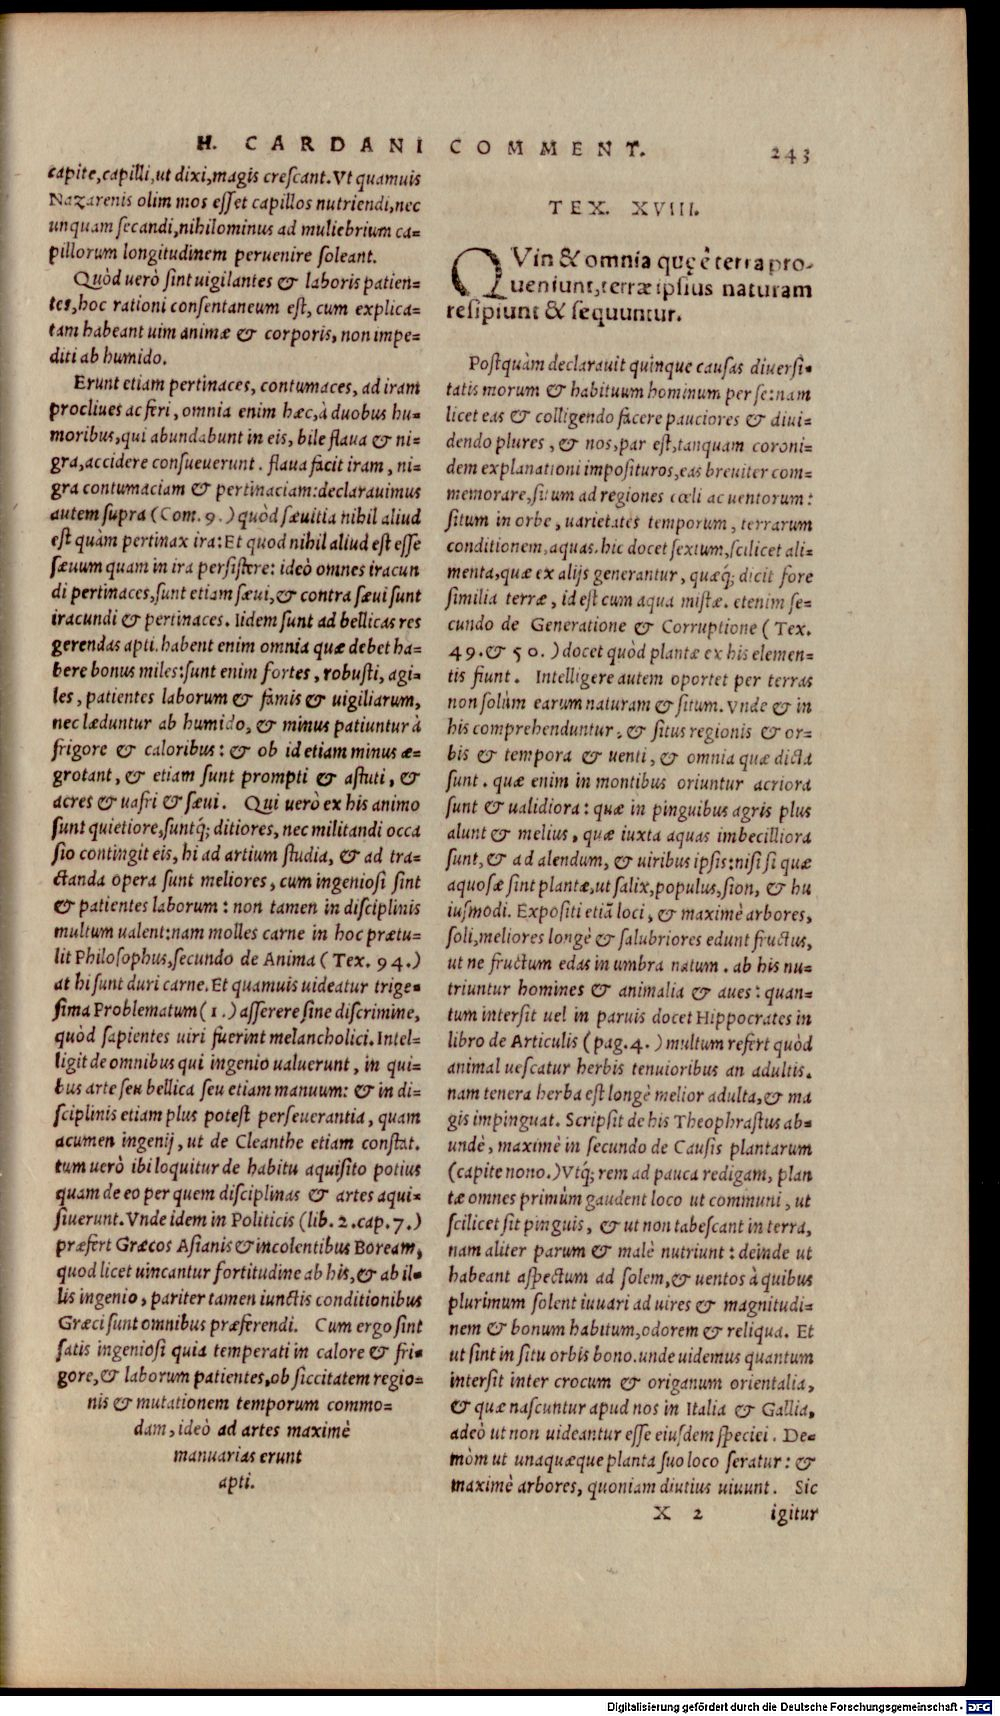 H. CARDANI COMMENT. 243
capite, capilli, ut dixi, magis creſcant. Vt quamuis
Nazarenis olim mos eſſet capillos nutriendi, nec
unquam ſecandi, nihilominus ad muliebrium ca=
pillorum longitudinem peruenire ſoleant.
Quòd uerò ſint uigilantes & laboris patien=
tes, hoc rationi conſentaneum eſt, cum explica=
tam habeant uim animæ & corporis, non impe=
diti ab humido.
Erunt etiam pertinaces, contumaces, ad iram
procliues ac feri, omnia enim hæc, à duobus hu=
moribus, qui abundabunt in eis, bile flaua & ni=
gra, accidere conſueuerunt. flaua facit iram, ni=
gra contumaciam & pertinaciam: declarauimus
autem ſupra (Com. 9.) quòd ſæuitia nihil aliud
eſt quàm pertinax ira: Et quod nihil aliud eſt eſſe
ſæuum quam in ira perſiſtere: ideò omnes iracun
di pertinaces, ſunt etiam ſæui, & contra ſæui ſunt
iracundi & pertinaces. Iidem ſunt ad bellicas res
gerendas apti. habent enim omnia quæ debet ha=
bere bonus miles: ſunt enim fortes, robuſti, agi=
les, patientes laborum & famis & uigiliarum,
nec læduntur ab humido, & minus patiuntur à
frigore & caloribus: & ob id etiam minus æ=
grotant, & etiam ſunt prompti & aſtuti, &
acres & uafri & ſæui. Qui uerò ex his animo
ſunt quietiore, ſuntq́; ditiores, nec militandi occa
ſio contingit eis, hi ad artium ſtudia, & ad tra=
ctanda opera ſunt meliores, cum ingenioſi ſint
& patientes laborum: non tamen in diſciplinis
multum ualent: nam molles carne in hoc prætu=
lit Philoſophus, ſecundo de Anima (Tex. 94.)
at hi ſunt duri carne. Et quamuis uideatur trige=
ſima Problematum (1.) aſſerere ſine diſcrimine,
quòd ſapientes uiri fuerint melancholici. Intel=
ligit de omnibus qui ingenio ualuerunt, in qui=
bus arte ſeu bellica ſeu etiam manuum: & in di=
ſciplinis etiam plus poteſt perſeuerantia, quam
acumen ingenij, ut de Cleanthe etiam conſtat.
tum uerò ibi loquitur de habitu aquiſito potius
quam de eo per quem diſciplinas & artes aqui=
ſiuerunt. Vnde idem in Politicis (lib. 2. cap. 7.)
præfert Græcos Aſianis & incolentibus Boream,
quod licet uincantur fortitudine ab his, & ab il=
lis ingenio, pariter tamen iunctis conditionibus
Græci ſunt omnibus præferendi. Cum ergo ſint
ſatis ingenioſi quia temperati in calore & fri=
gore, & laborum patientes, ob ſiccitatem regio=
nis & mutationem temporum commo=
dam, ideò ad artes maximè
manuarias erunt
apti.
TEX. XVIII.
QVin & omnia quę è terra pro-
ueniunt, terræ ipſius naturam
reſipiunt & ſequuntur.
Poſtquàm declarauit quinque cauſas diuerſi=
tatis morum & habituum hominum per ſe: nam
licet eas & colligendo facere pauciores & diui=
dendo plures, & nos, par eſt, tanquam coroni=
dem explanationi impoſituros, eas breuiter com=
memorare, ſitum ad regiones cœli ac uentorum:
ſitum in orbe, uarietates temporum, terrarum
conditionem, aquas. hic docet ſextum, ſcilicet ali=
menta, quæ ex alijs generantur, quæq́; dicit fore
ſimilia terræ, id eſt cum aqua miſtæ. etenim ſe=
cundo de Generatione & Corruptione (Tex.
49. & 50.) docet quòd plantæ ex his elemen=
tis fiunt. Intelligere autem oportet per terras
non ſolùm earum naturam & ſitum. Vnde & in
his comprehenduntur, & ſitus regionis & or=
bis & tempora & uenti, & omnia quæ dicta
ſunt. quæ enim in montibus oriuntur acriora
ſunt & ualidiora: quæ in pinguibus agris plus
alunt & melius, quæ iuxta aquas imbecilliora
ſunt, & ad alendum, & uiribus ipſis: niſi ſi quæ
aquoſæ ſint plantæ, ut ſalix, populus, ſion, & hu
iuſmodi. Expoſiti etiā loci, & maximè arbores,
ſoli, meliores longè & ſalubriores edunt fructus,
ut ne fructum edas in umbra natum. ab his nu=
triuntur homines & animalia & aues: quan=
tum interſit uel in paruis docet Hippocrates in
libro de Articulis (pag. 4.) multum refert quòd
animal ueſcatur herbis tenuioribus an adultis.
nam tenera herba eſt longè melior adulta, & ma
gis impinguat. Scripſit de his Theophraſtus ab=
undè, maximè in ſecundo de Cauſis plantarum
(capite nono.) Vtq́; rem ad pauca redigam, plan
tæ omnes primùm gaudent loco ut communi, ut
ſcilicet ſit pinguis, & ut non tabeſcant in terra,
nam aliter parum & malè nutriunt: deinde ut
habeant aſpectum ad ſolem, & uentos à quibus
plurimum ſolent iuuari ad uires & magnitudi=
nem & bonum habitum, odorem & reliqua. Et
ut ſint in ſitu orbis bono. unde uidemus quantum
interſit inter crocum & origanum orientalia,
& quæ naſcuntur apud nos in Italia & Gallia,
adeò ut non uideantur eſſe eiuſdem ſpeciei. De=
mòm ut unaquæque planta ſuo loco ſeratur: &
maximè arbores, quoniam diutius uiuunt. Sic
X 2 igitur
Digitalisierung gefördert durch die Deutsche Forschungsgemeinschaft - DFG